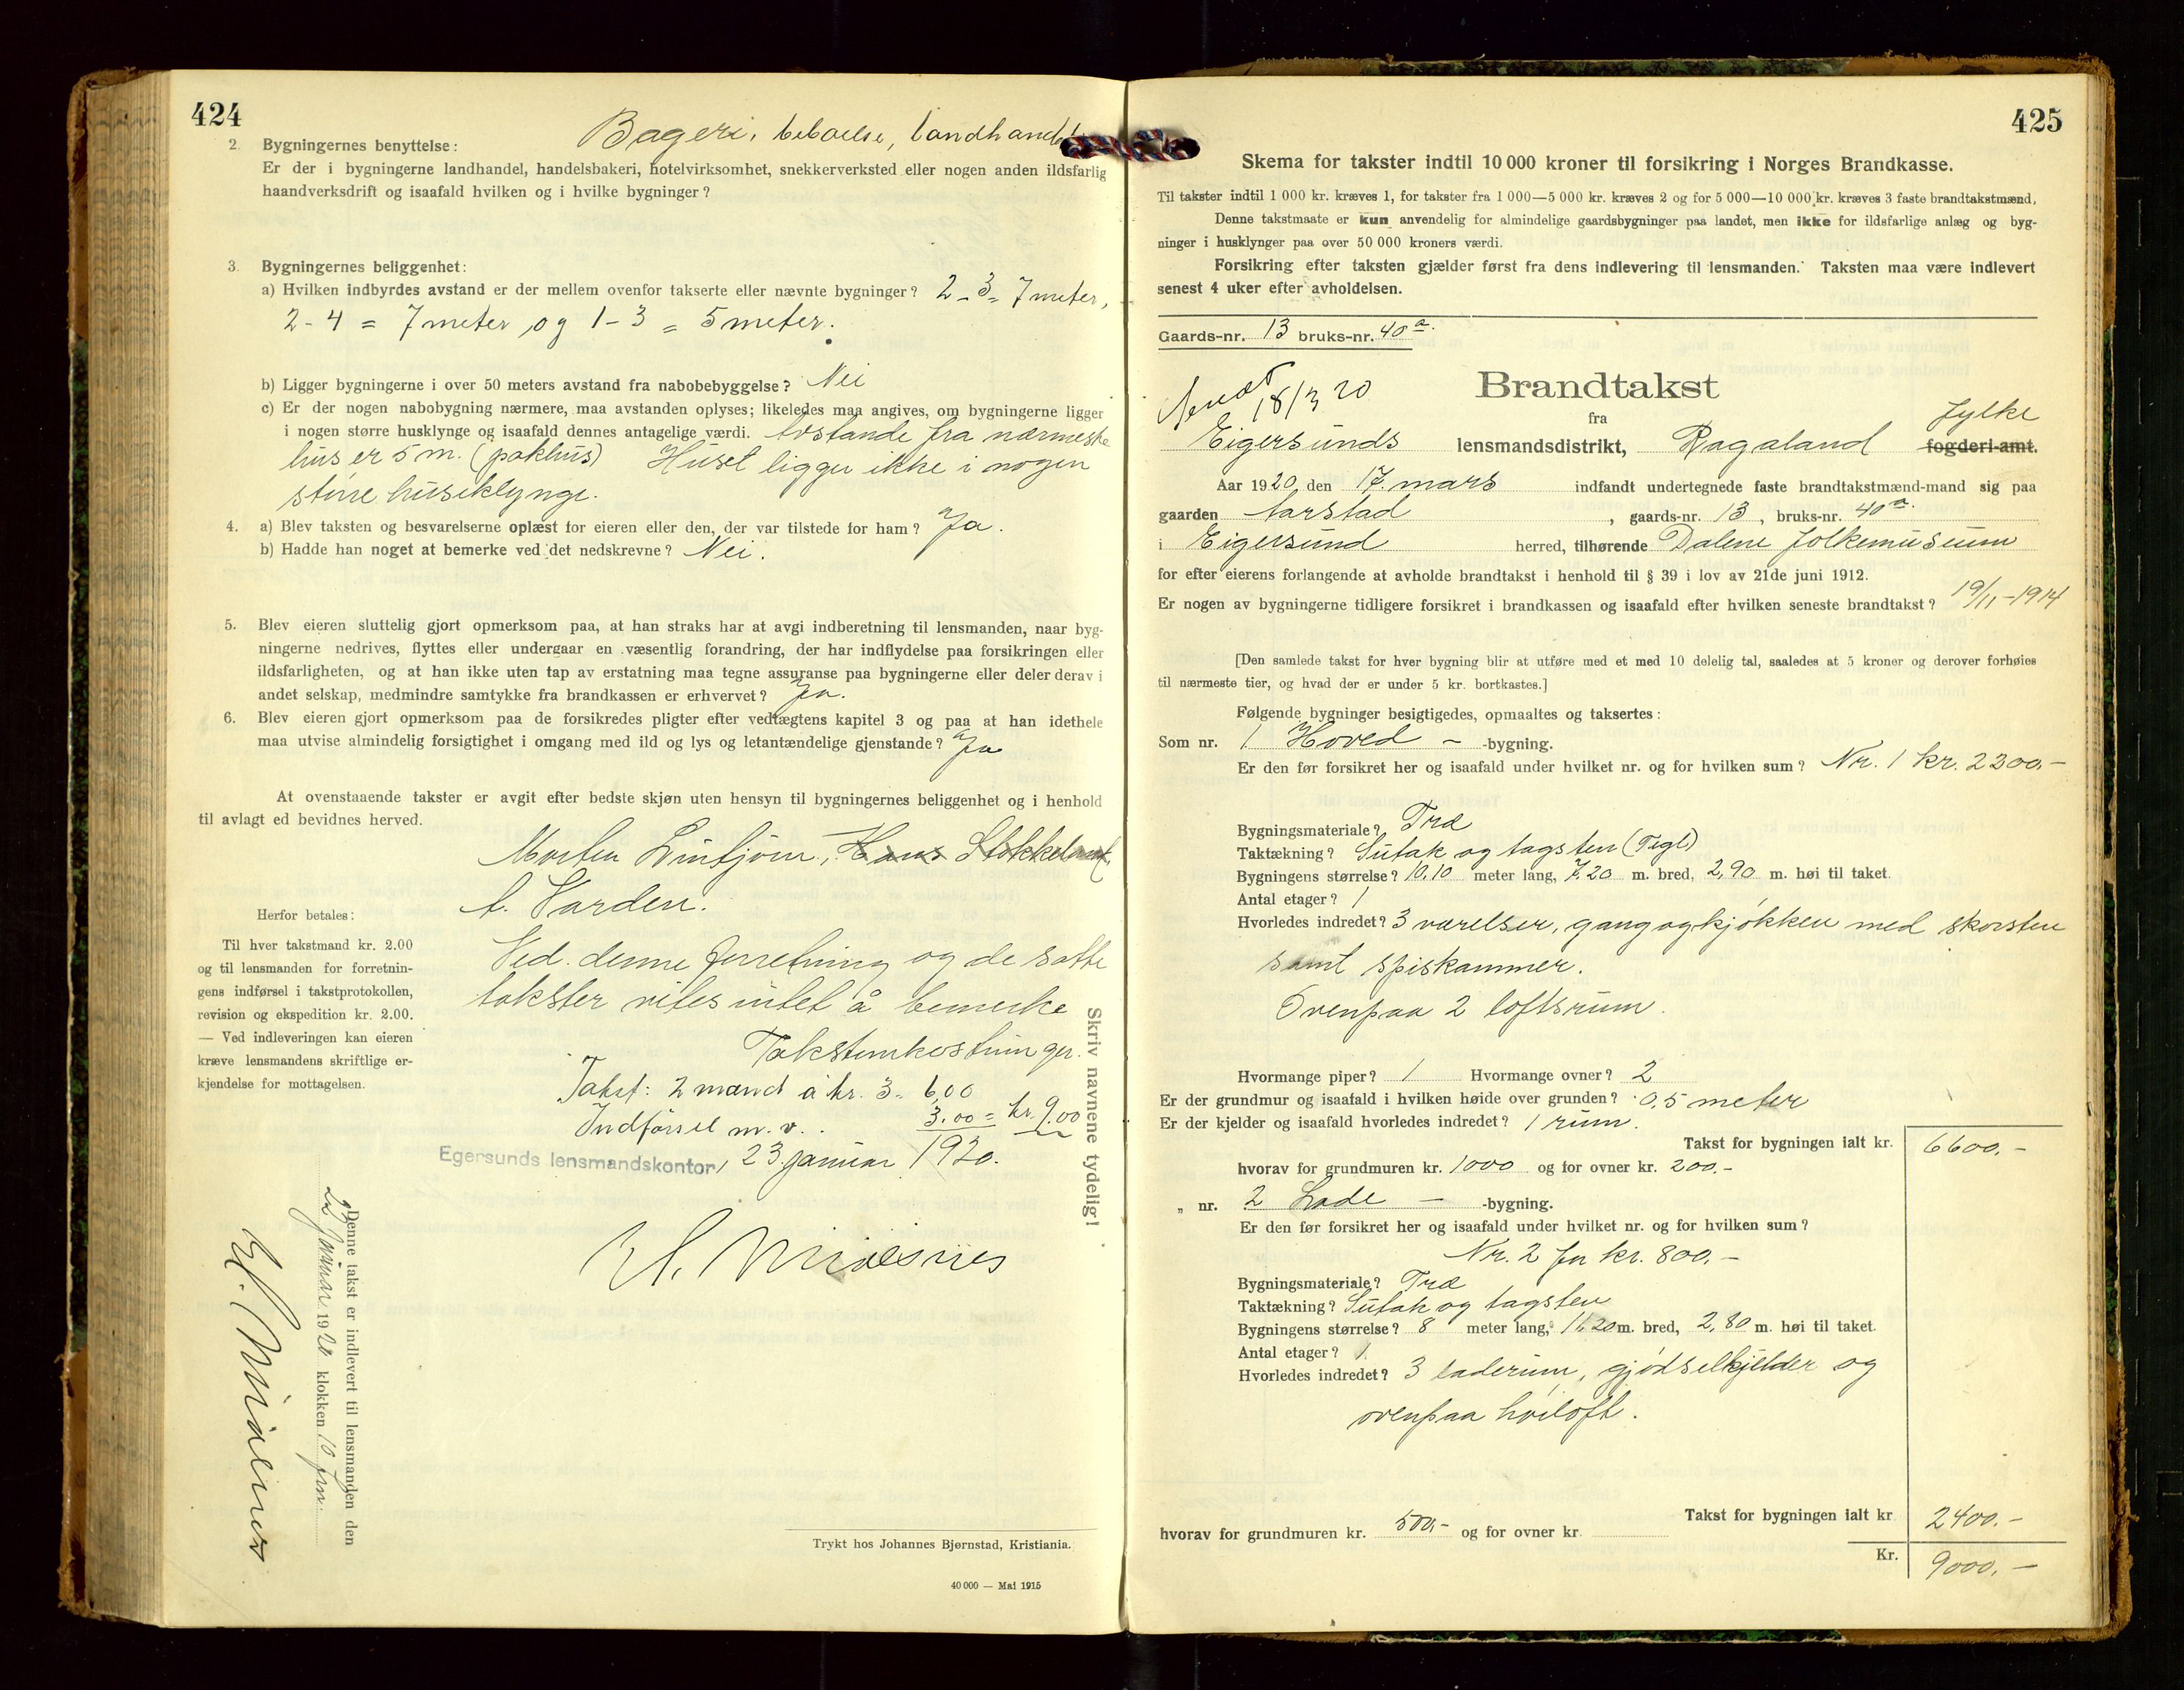 424
2. Bygningernes benyttelse: Bageri, beboelse, landhandel
Er der i bygningerne landhandel, handelsbakeri, hotelvirksomhet, snekkerverksted eller nogen anden ildsfarlig
haandverksdrift og isaafald hvilken og i hvilke bygninger?
3. Bygningernes beliggenhet:
a) Hvilken indbyrdes avstand er der mellem ovenfor takserte eller nævnte bygninger? 2 - 3 = 7 meter,
2 - 4 = 7 meter og 1 - 3 = 5 meter.
b) Ligger bygningerne i over 50 meters avstand fra nabobebyggelse? Nei
c) Er der nogen nabobygning nærmere, maa avstanden oplyses; likeledes maa angives, om bygningerne ligger
i nogen større husklynge og isaafald dennes antagelige værdi. Avstande fra nærmeste
hus er 5 m. (pakhus) Huset ligger ikke i nogen
större huseklynge.
4. a) Blev taksten og besvarelserne oplæst for eieren eller den, der var tilstede for ham? Ja.
b) Hadde han noget at bemerke ved det nedskrevne? Nei.
5. Blev eieren sluttelig gjort opmerksom paa, at han straks har at avgi indberetning til lensmanden, naar byg-
ningerne nedrives, flyttes eller undergaar en væsentlig forandring, der har indflydelse paa forsikringen eller
ildsfarligheten, og at han ikke uten tap av erstatning maa tegne assuranse paa bygningerne eller deler derav i
andet selskap, medmindre samtykke fra brandkassen er erhvervet? Ja.
6. Blev eieren gjort opmerksom paa de forsikredes pligter efter vedtægtens kapitel 3 og paa at han idethele
maa utvise almindelig forsigtighet i omgang med ild og lys og letantændelige gjenstande? Ja
At ovenstaaende takster er avgit efter bedste skjøn uten hensyn til bygningernes beliggenhet og i henhold
til avlagt ed bevidnes herved.
Morten Lintjørn, Hans
A. Varden.
Herfor betales:
Til hver takstmand kr. 2.00
og til lensmanden for forretnin-
gens indførsel i takstprotokollen,
revision og ekspedition kr. 2.00.
— Ved indleveringen kan eieren
kræve lensmandens skriftlige er-
kjendelse for mottagelsen.
Ved denne forretning og de satte
takster vites intet å bemerke
Takstomkostninger.
Takst: 2 mand à kr. 3= 6,00
Indförsel m. v. . 3.00 = kr. 9.00
Egersunds lensmandskontor, 23 januar 1920.
Skriv navnene tydelig!
Denne takst er indlevert til lensmanden den
23 Januar 1920 klokken 10 fm.
Trykt hos Johannes Bjørnstad, Kristiania.
40 000 — Mai 1915
425
Skema for takster indtil 10 000 kroner til forsikring i Norges Brandkasse.
Til takster indtil 1 000 kr. kræves 1, for takster fra 1 000—5 000 kr. kræves 2 og for 5 000—10 000 kr. kræves 3 faste brandtakstmænd,
Denne takstmaate er kun anvendelig for almindelige gaardsbygninger paa landet, men ikke for ildsfarlige anlæg og byg-
ninger i husklynger paa over 50 000 kroners værdi.
Forsikring efter taksten gjælder først fra dens indlevering til lensmanden. Taksten maa være indlevert
senest 4 uker efter avholdelsen.
Gaards-nr. 13 bruks-nr. 40 a.
18/3 20
Brandtakst
fra
Eigersunds lensmandsdistrikt, Rogaland fylke fogderi-amt.
Aar 1920 den 17. mars indfandt undertegnede faste brandtakstmænd-mand sig paa
gaarden Aarstad, gaards-nr. 13, bruks-nr. 40 a.
i Eigersund herred, tilhørende Dalene folkemuseum
for efter eierens forlangende at avholde brandtakst i henhold til § 39 i lov av 21de juni 1912.
Er nogen av bygningerne tidligere forsikret i brandkassen og isaafald efter hvilken seneste brandtakst? 19/11-1914
[Den samlede takst for hver bygning blir at utføre med et med 10 delelig tal, saaledes at 5 kroner og derover forhøies
til nærmeste tier, og hvad der er under 5 kr. bortkastes.]
Følgende bygninger besigtigedes, opmaaltes og taksertes:
Som nr. 1 Hoved - -bygning.
Er den før forsikret her og isaafald under hvilket nr. og for hvilken sum? Nr. 1 kr. 2200,-
Bygningsmateriale? Træ
Taktækning? Sutak og tagsten (Tegl)
Bygningens størrelse? 10,10 meter lang, 7,20 m. bred, 2,90 m. høi til taket.
Antal etager? 1
Hvorledes indredet? 3 værelser, gang og kjøkken med skorsten
samt spiskammer.
Ovenpaa 2 loftsrum.
Hvormange piper? 1 Hvormange ovner? 2
Er der grundmur og isaafald i hvilken høide over grunden? 0,5 meter
Er der kjelder og isaafald hvorledes indredet? 1 rum.
Takst for bygningen ialt kr. 6600,-
hvorav for grundmuren kr. 1000 og for ovner kr. 200.-
„ nr. 2 Lade - -bygning.
Er den før forsikret her og isaafald under hvilket nr. og for hvilken sum?
Nr. 2 for kr. 800,-
Bygningsmateriale? Træ
Taktækning? Sutak og tagsten
Bygningens størrelse? 8 meter lang, 11,20 m. bred, 2,80 m. høi til taket.
Antal etager? 1
Hvorledes indredet? 3 laderum, gjødselkjelder og
ovenpaa höiloft.
Takst for bygningen ialt kr 2400.-
hvorav for grundmuren kr. 500,- og for ovner kr.
Kr. 9000,-